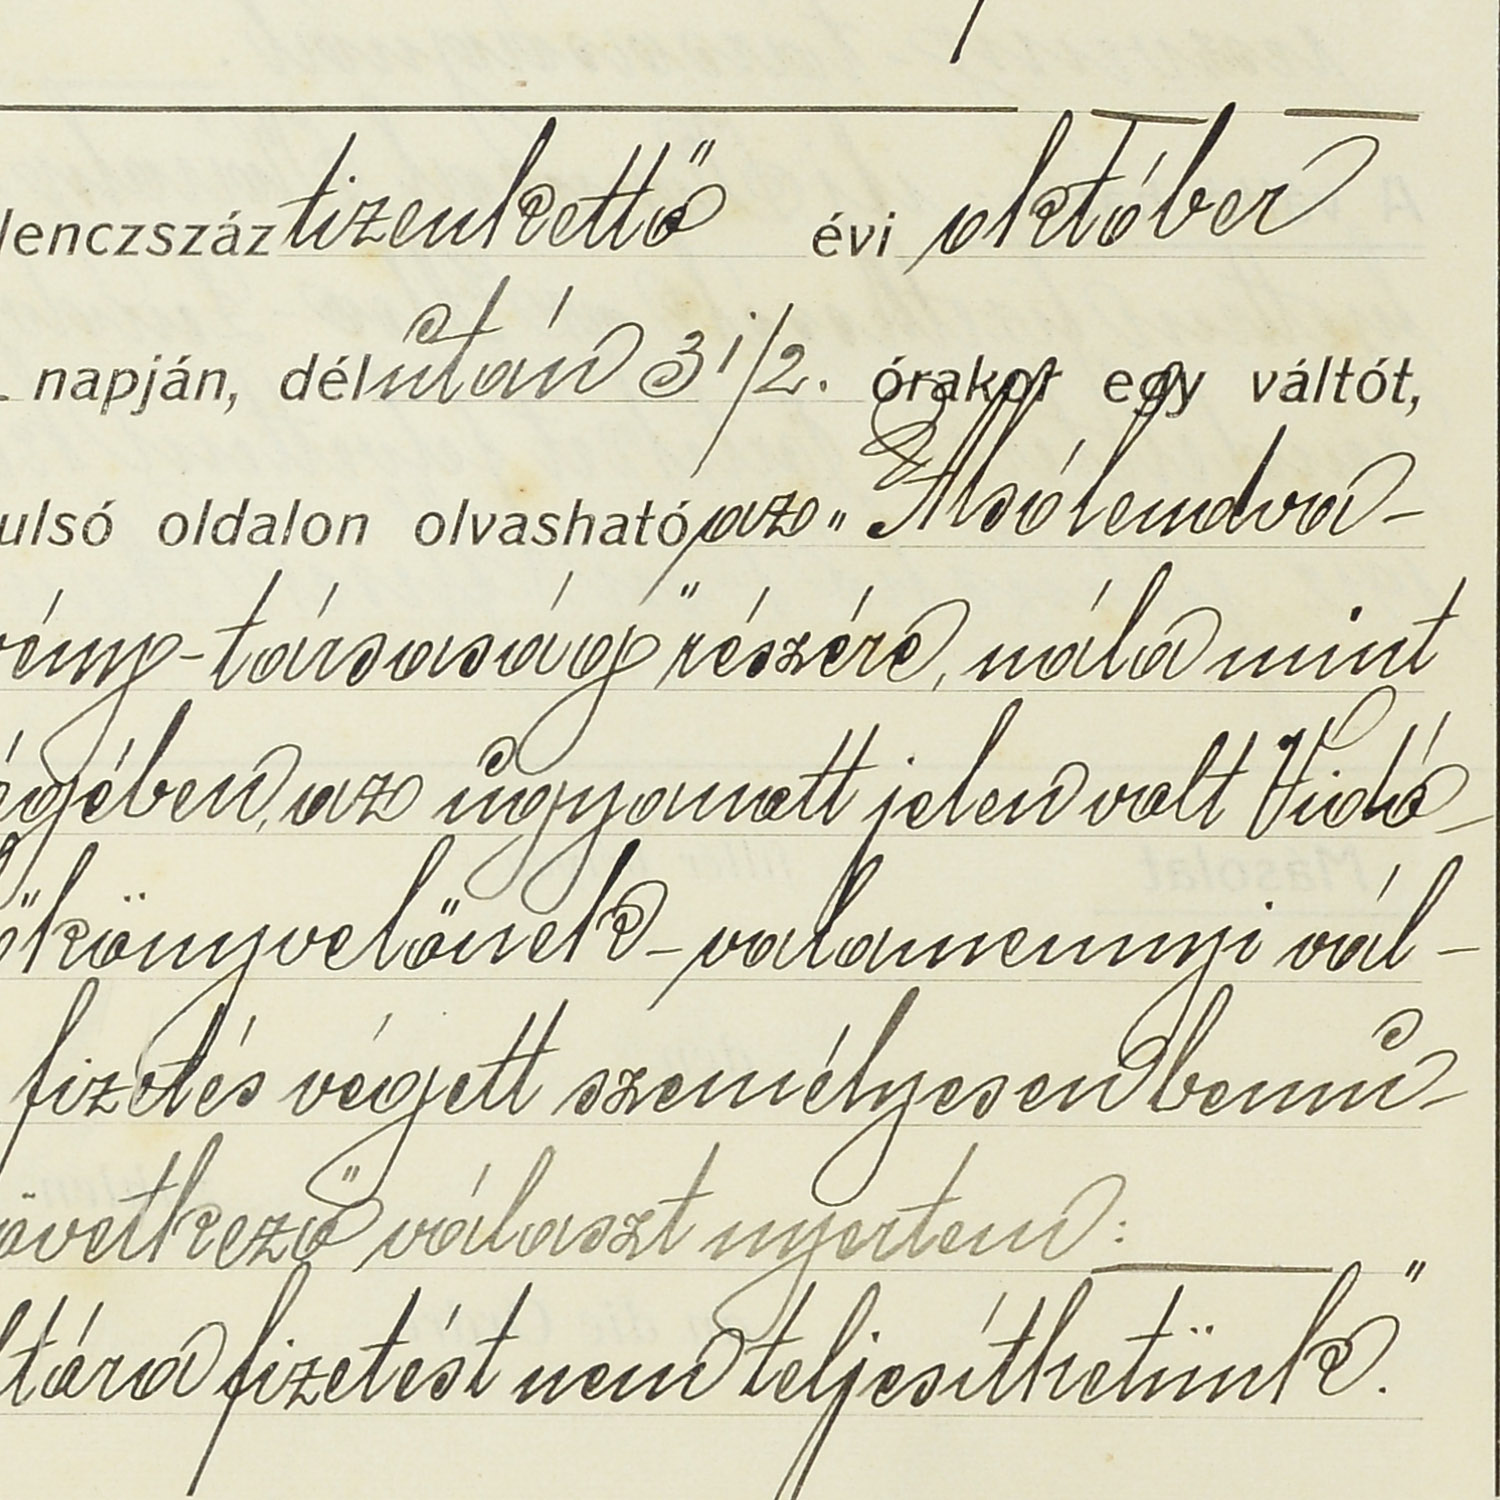 lenczszáz tizenkettő évi október
napján, délután 3 1/2. órakor egy váltót,
ulsó oldalon olvasható, az „Alsólendva-
vény-társaság" részére, nála mint
égében, az ugyanott jelen volt Vidó-
őkönyvelőnek - valamennyi vál-
fizetés végett személyesen bemu-
övetkező választ nyertem:
ltára fizetést nem teljesíthetünk."